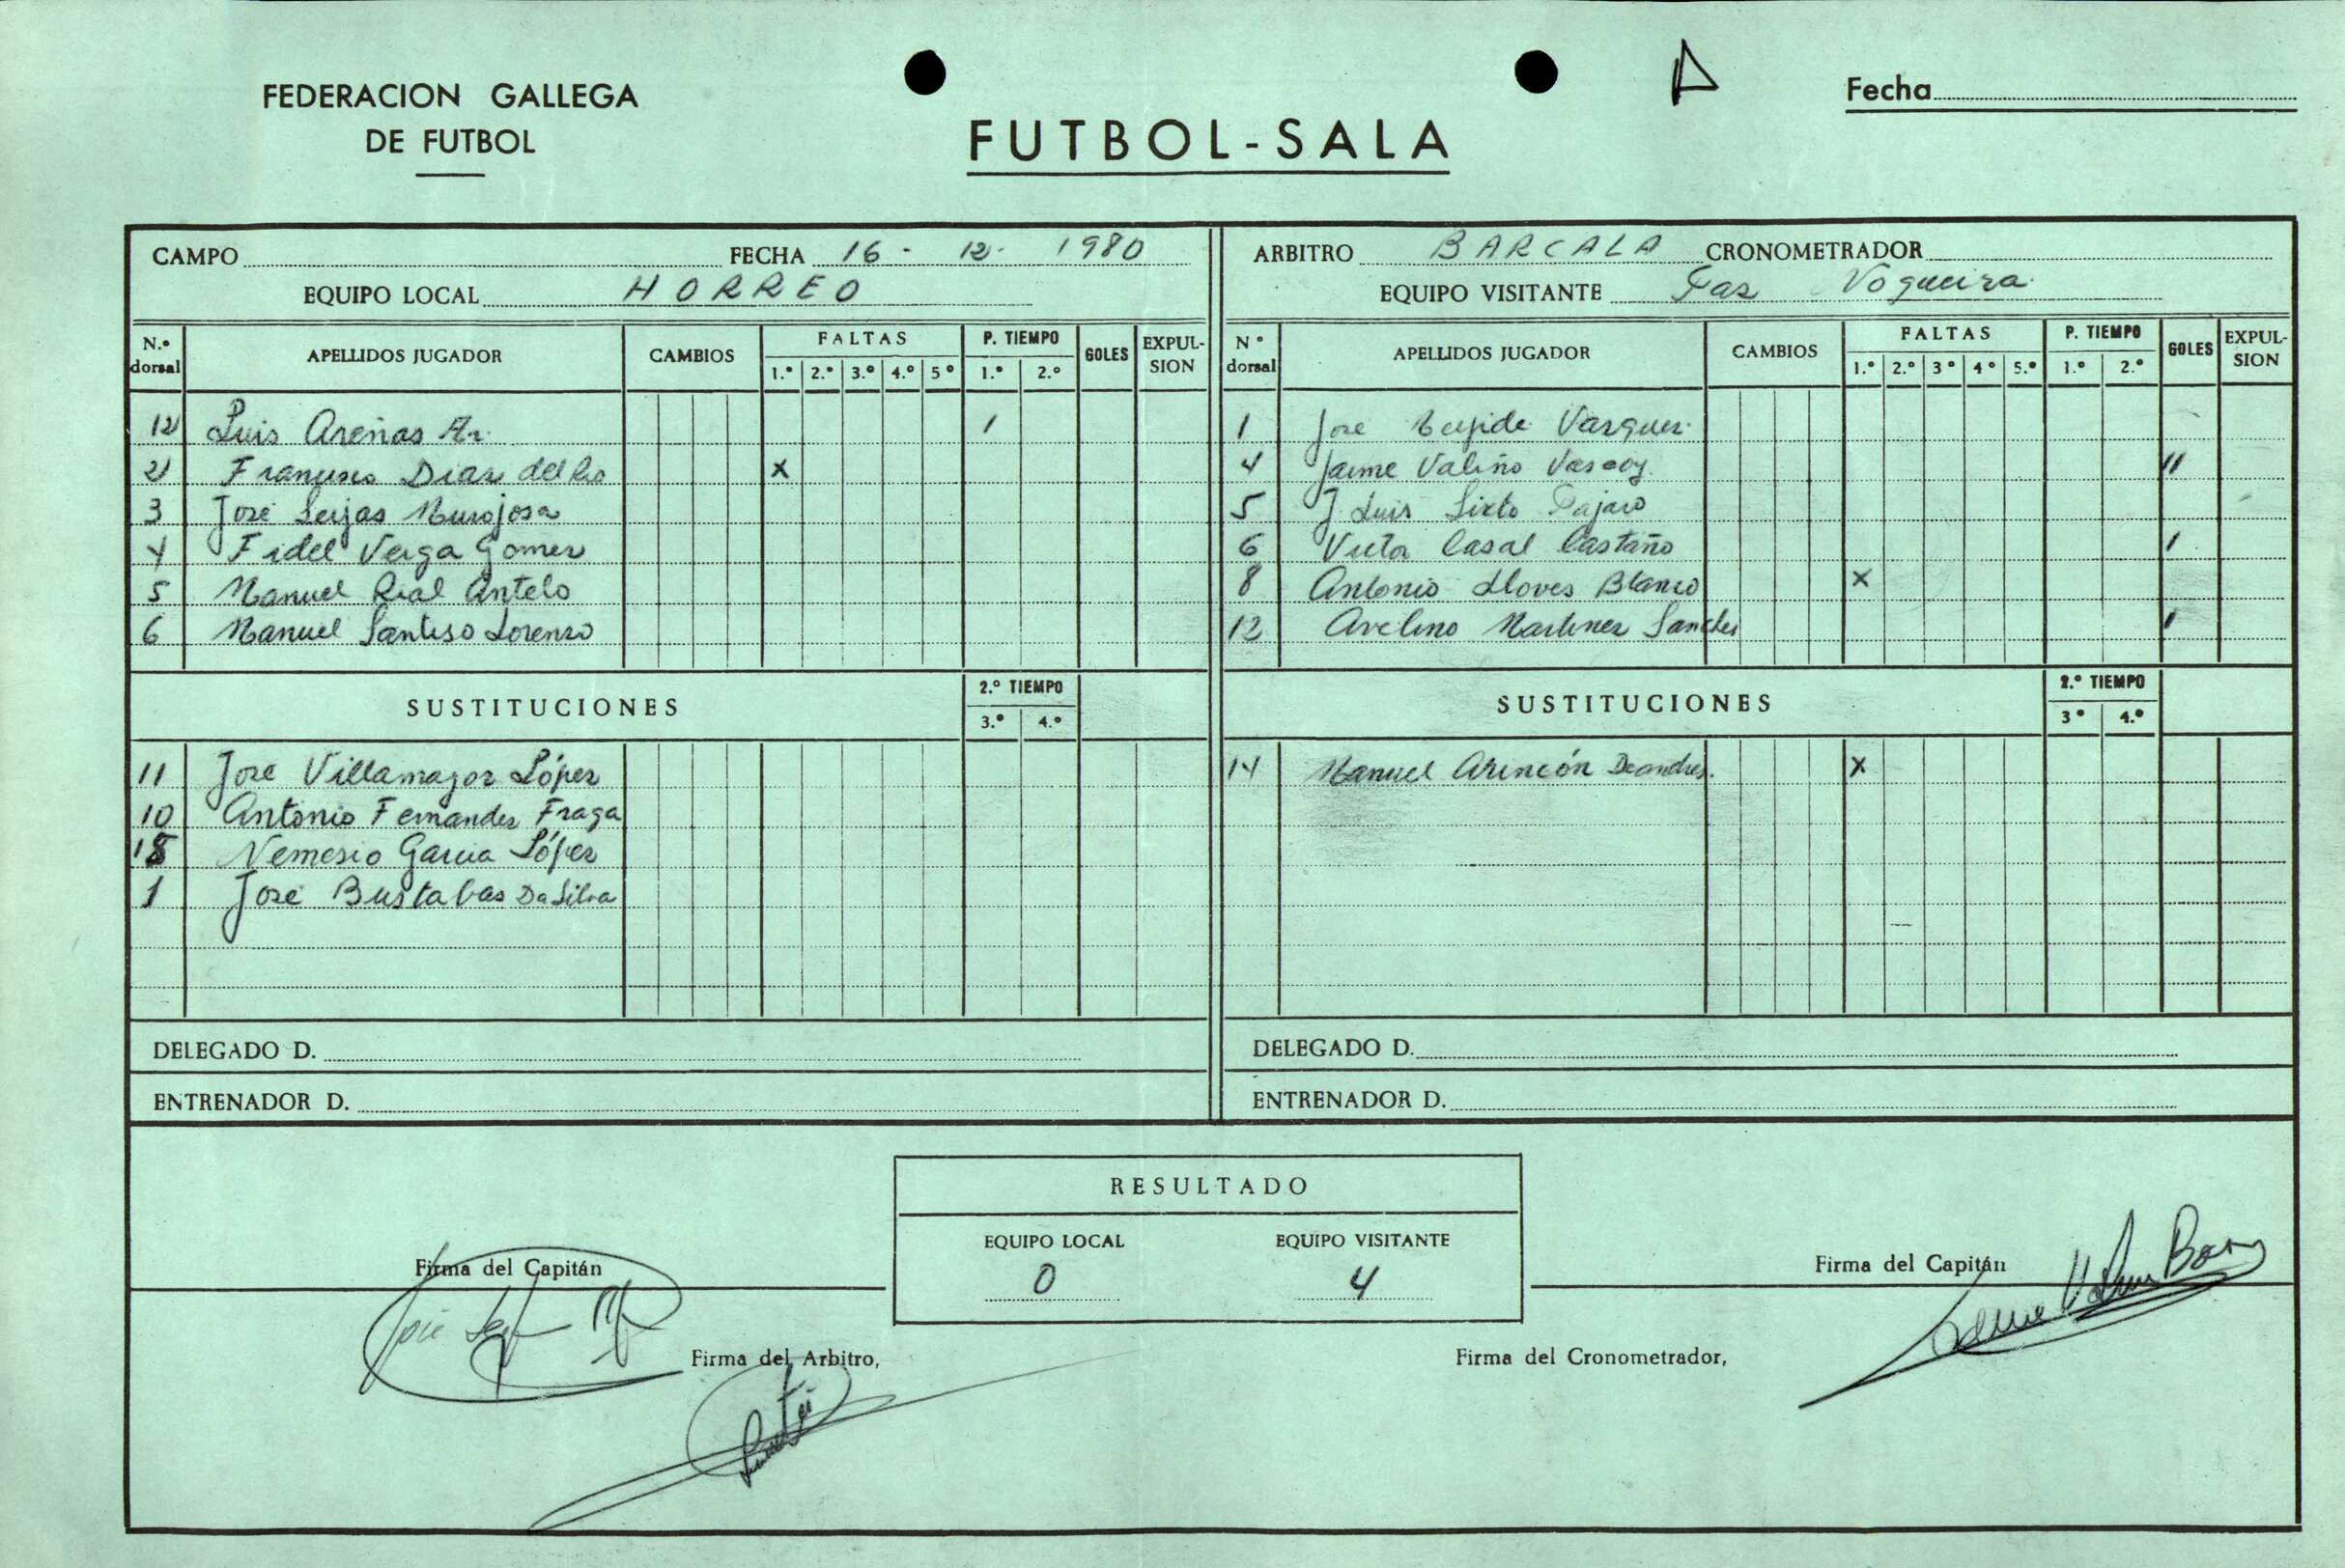 FEDERACION GALLEGA
DE FUTBOL
FUTBOL-SALA
Fecha
CAMPO FECHA 16 - 12 - 1980
EQUIPO LOCAL HORREO
N.º dorsal APELLIDOS JUGADOR CAMBIOS FALTAS 1.º 2.º 3.º 4.º 5º P. TIEMPO 1.º 2.º GOLES EXPULSION
12 Luis Arenas 1
2 Francisco Diaz del Rio x
3 José Seijas
4 Fidel Veiga Gomez
5 Manuel Rial Antelo
6 Manuel Santiso Lorenzo
SUSTITUCIONES 2.º TIEMPO 3.º 4.º
11 Jose Villamayor López
10 Antonio Fernandez Fraga
18 Nemesio Garcia López
1 José Bustabas Da Silva
DELEGADO D.
ENTRENADOR D.
ARBITRO BARCALA CRONOMETRADOR
EQUIPO VISITANTE
Nº dorsal APELLIDOS JUGADOR CAMBIOS FALTAS 1.º 2.º 3º 4º 5.º P. TIEMPO 1.º 2.º GOLES EXPULSION
1 Jose Vazquez
4 Jaime Valiño 11
5 J. Luis Sixto Pajaro
6 Victor Casal Castaño 1
8 Antonio Lloves Blanco x
12 Avelino Martinez Sanchez 1
SUSTITUCIONES 2.º TIEMPO 3º 4.º
14 Manuel x
DELEGADO D.
ENTRENADOR D.
RESULTADO
EQUIPO LOCAL EQUIPO VISITANTE
0 4
Firma del Capitán
Firma del Capitán
Firma del Arbitro,
Firma del Cronometrador,